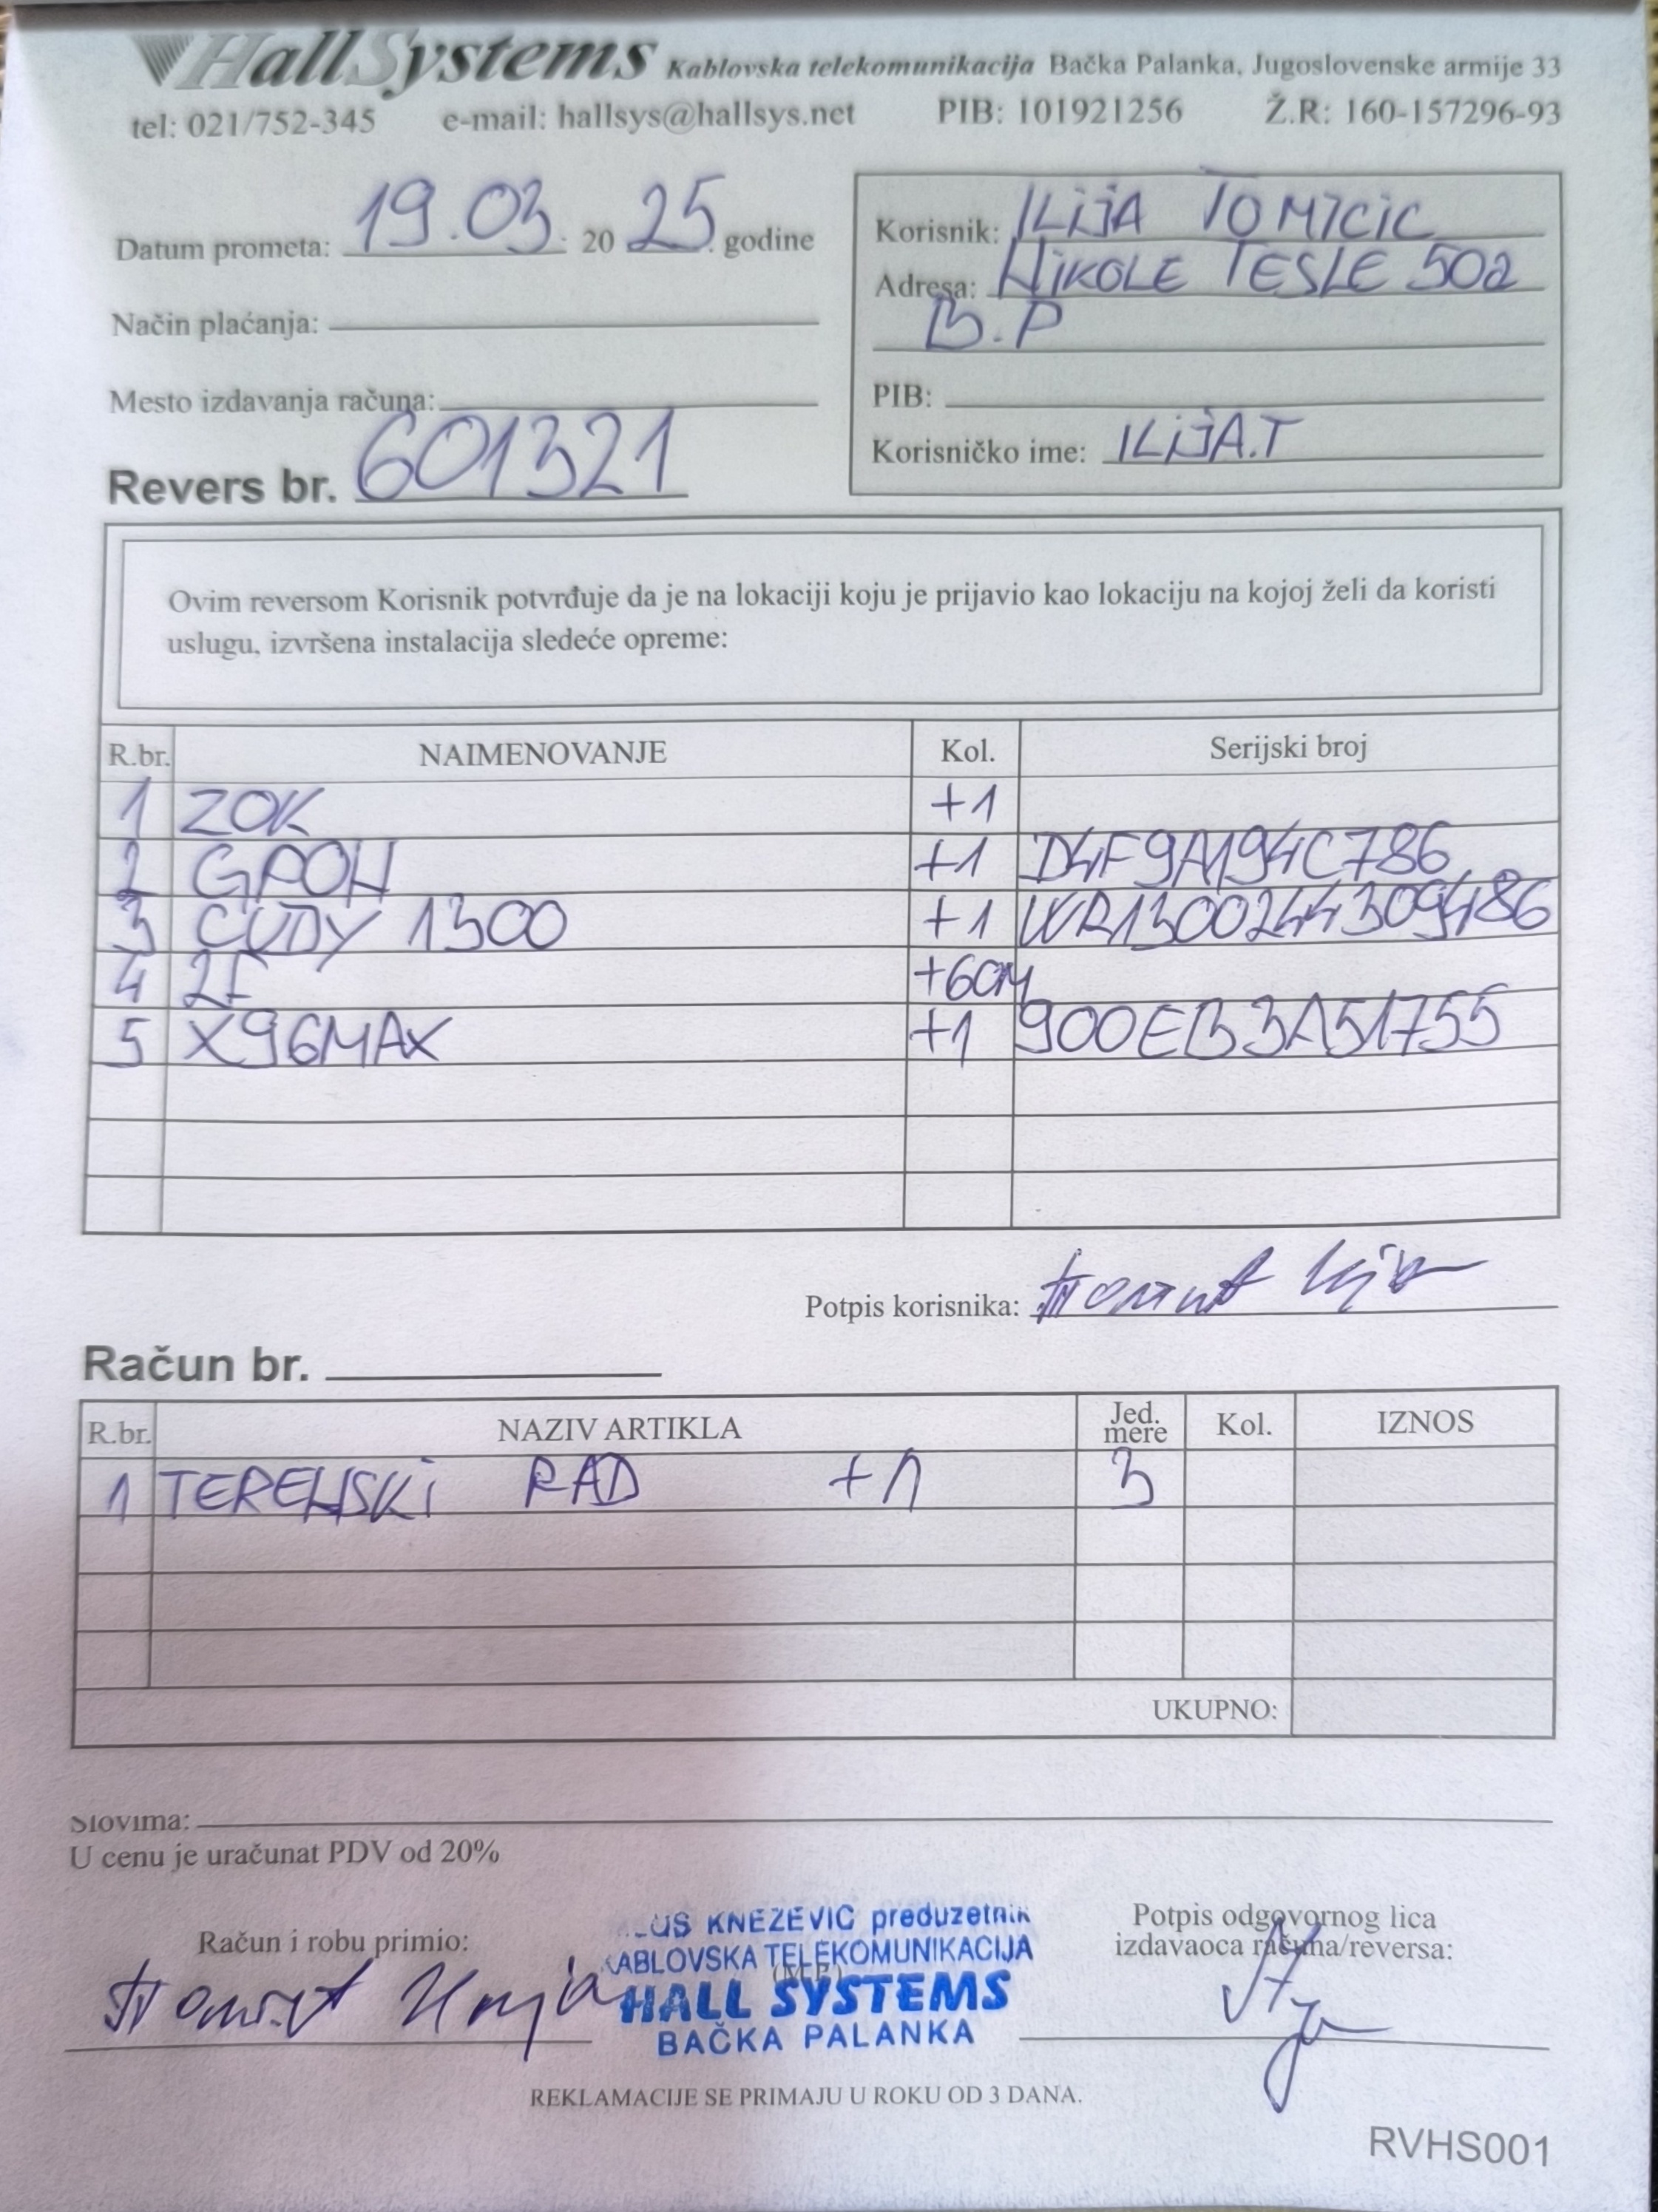 HallSystems Kablovska telekomunikacija Bačka Palanka, Jugoslovenske armije 33
tel: 021/752-345 e-mail: hallsys@hallsys.net PIB: 101921256 Ž.R: 160-157296-93
Datum prometa: 19.03. 20 25. godine
Način plaćanja:
Mesto izdavanja računa:
Revers br. 601321
Korisnik: ILIJA TOMICIC
Adresa: NIKOLE TESLE 502
B.P
PIB:
Korisničko ime: ILIJA.T
Ovim reversom Korisnik potvrđuje da je na lokaciji koju je prijavio kao lokaciju na kojoj želi da koristi
uslugu, izvršena instalacija sledeće opreme:
R.br. NAIMENOVANJE Kol. Serijski broj
1 ZOK +1
2 GPON +1 D4F9A194C786
3 CUDY 1300 +1 WR1300244309486
4 2F +60M
5 X96MAX +1 900EB3A51755
Potpis korisnika:
Račun br.
R.br. NAZIV ARTIKLA Jed. mere Kol. IZNOS
1 TERENSKI RAD +1 3
UKUPNO:
Slovima:
U cenu je uračunat PDV od 20%
Račun i robu primio:
KNEZEVIC preduzetnik
KABLOVSKA TELEKOMUNIKACIJA
(M.P.)
HALL SYSTEMS
BAČKA PALANKA
Potpis odgovornog lica
izdavaoca računa/reversa:
REKLAMACIJE SE PRIMAJU U ROKU OD 3 DANA.
RVHS001